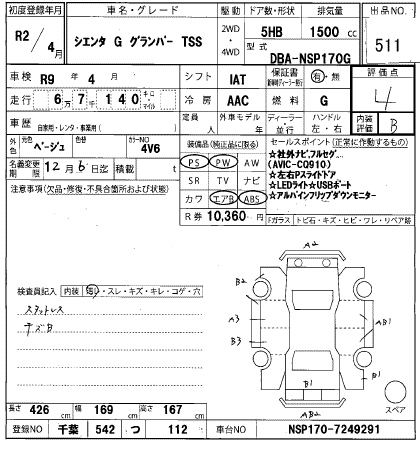 初度登録年月 車名・グレード 駆動 ドア数・形状 排気量 出品NO.
R2/4月 シエンタ G グランパー TSS 2WD・4WD 5HB 1500cc 511
型式 DBA-NSP170G
車検 R9年4月 シフト IAT 保証書 有・無 評価点
走行 6万7千140 キロ・マイル 冷房 AAC 燃料 G 4
車歴 自家用・レンタ・事業用( ) 定員 人 外車モデル 年 ディーラー・並行 ハンドル 左・右 内装評価 B
外色 元色 ベージュ 色替 カラーNO 4V6 装備品(純正品に限る) セールスポイント(正常に作動するもの)
名義変更期限 12月6日迄 積載 t PS PW AW ☆社外ナビ,フルセグ
注意事項(欠品・修復・不具合箇所および状態) SR TV ナビ (AVIC-CQ910)
カワ エアB ABS ☆左右Pスライドドア
☆LEDライト☆USBポート
☆アルパインフリップダウンモニター
R券 10,360円 Fガラス トビ石・キズ・ヒビ・ワレ・リペア跡
A2
検査員記入 内装 汚れ・スレ・キズ・キレ・コゲ・穴
B2
スタットレス
A3
AB1
B3
B1
B1
A1
AB2
スペア
長さ 426cm 幅 169cm 高さ 167cm
登録NO 千葉 542 つ 112 車台NO NSP170-7249291